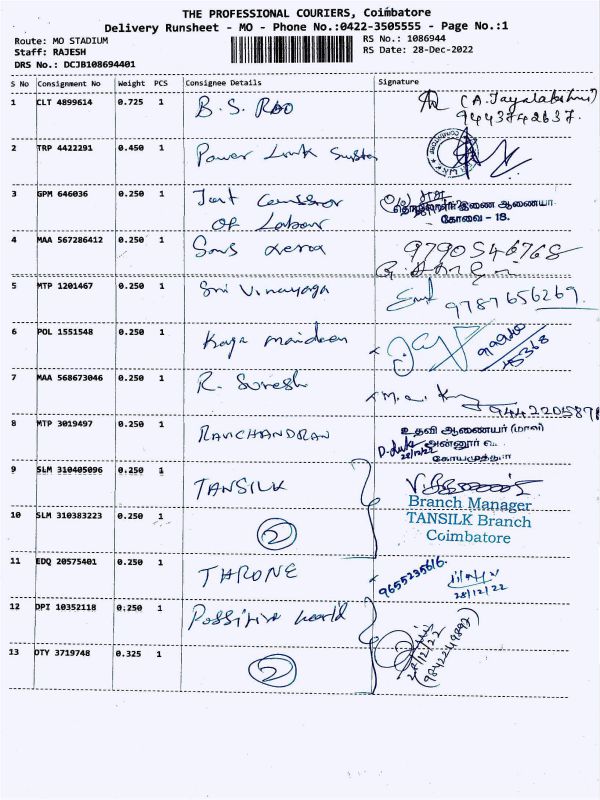 THE PROFESSIONAL COURIERS, Coimbatore
Delivery Runsheet - MO - Phone No.:0422-3505555 - Page No.:1
Route: MO STADIUM
Staff: RAJESH
DRS No.: DCJB108694401
RS No.: 1086944
RS Date: 28-Dec-2022
S No Consignment No Weight PCS Consignee Details Signature
1 CLT 4899614 0.725 1 B.S. RAO (A. Jayalakshmi)
9443742637.
2 TRP 4422291 0.450 1 Power Link
3 GPM 646036 0.250 1 Joint
of Labour இணை ஆணையர்
கோவை - 18.
4 MAA 567286412 0.250 1 Sons 9790546768
5 MTP 1201467 0.250 1 Sri Vinayaga 9787656269.
6 POL 1551548 0.250 1 Kaja maideen
7 MAA 568673046 0.250 1 R. Suresh
8 MTP 3019497 0.250 1 RAVICHANDRAN உதவி ஆணையர்
அன்னூர்
28/12/22
9 SLM 310405096 0.250 1 TANSILK
Branch Manager
TANSILK Branch
Coimbatore
10 SLM 310383223 0.250 1 2
11 EDQ 20575401 0.250 1 THRONE 9655235616.
28/12/22
12 DPI 10352118 0.250 1 Possitive world
28/12/22
(9842249897)
13 OTY 3719748 0.325 1 2